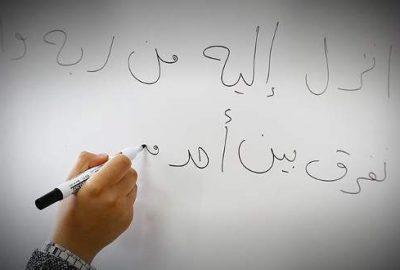 انزل إليه من ربه وا
نفرق بين أحد م